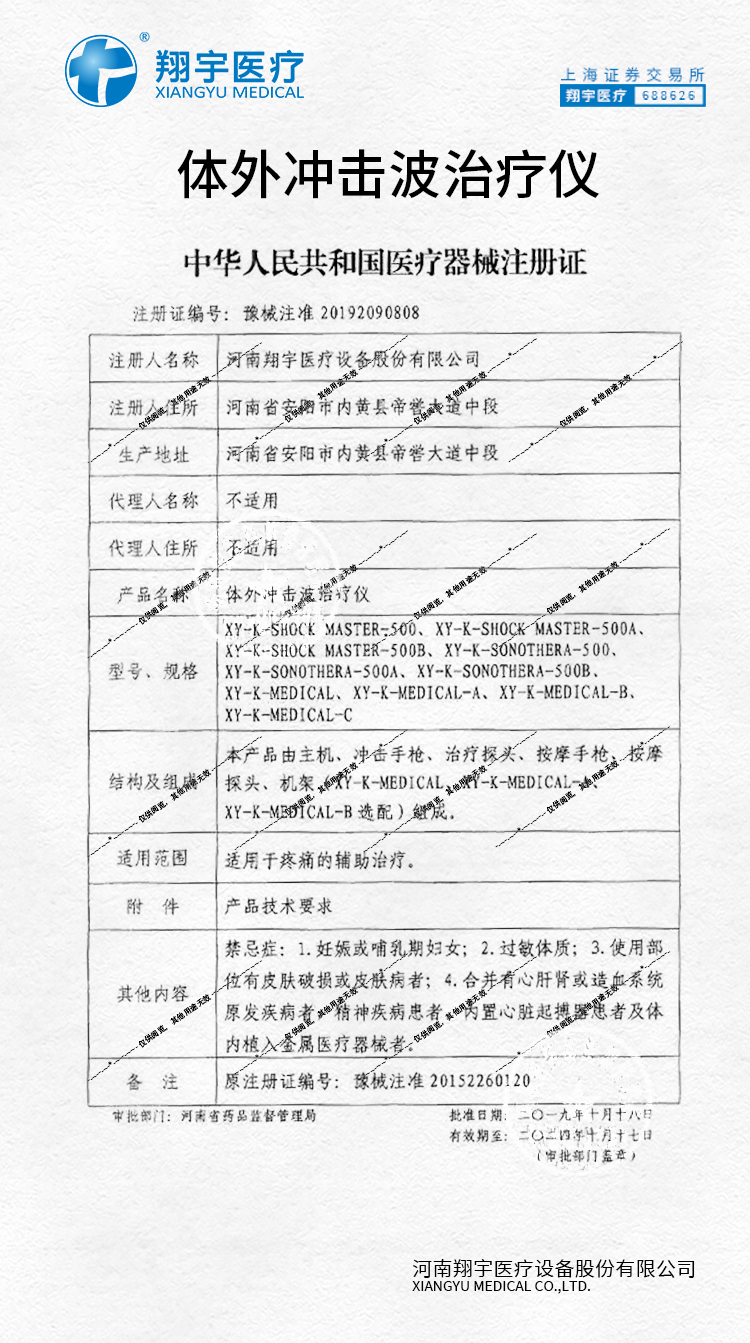 翔宇医疗®
XIANGYU MEDICAL
上海证券交易所
翔宇医疗 688626
体外冲击波治疗仪
中华人民共和国医疗器械注册证
注册证编号：豫械注准 20192090808
注册人名称 河南翔宇医疗设备股份有限公司
注册人住所 河南省安阳市内黄县帝喾大道中段
生产地址 河南省安阳市内黄县帝喾大道中段
代理人名称 不适用
代理人住所 不适用
产品名称 体外冲击波治疗仪
型号、规格
XY-K-SHOCK MASTER-500、XY-K-SHOCK MASTER-500A、
XY-K-SHOCK MASTER-500B、XY-K-SONOTHERA-500、
XY-K-SONOTHERA-500A、XY-K-SONOTHERA-500B、
XY-K-MEDICAL、XY-K-MEDICAL-A、XY-K-MEDICAL-B、
XY-K-MEDICAL-C
结构及组成
本产品由主机、冲击手枪、治疗探头、按摩手枪、按摩
探头、机架（XY-K-MEDICAL、XY-K-MEDICAL-A、
XY-K-MEDICAL-B 选配）组成。
适用范围 适用于疼痛的辅助治疗。
附 件 产品技术要求
其他内容
禁忌症：1.妊娠或哺乳期妇女；2.过敏体质；3.使用部
位有皮肤破损或皮肤病者；4.合并有心肝肾或造血系统
原发疾病者、精神疾病患者、内置心脏起搏器患者及体
内植入金属医疗器械者。
备 注 原注册证编号：豫械注准 20152260120
审批部门：河南省药品监督管理局 批准日期：二〇一九年十月十八日
有效期至：二〇二四年十月十七日
（审批部门盖章）
仅供阅览，其他用途无效
河南翔宇医疗设备股份有限公司
XIANGYU MEDICAL CO.,LTD.